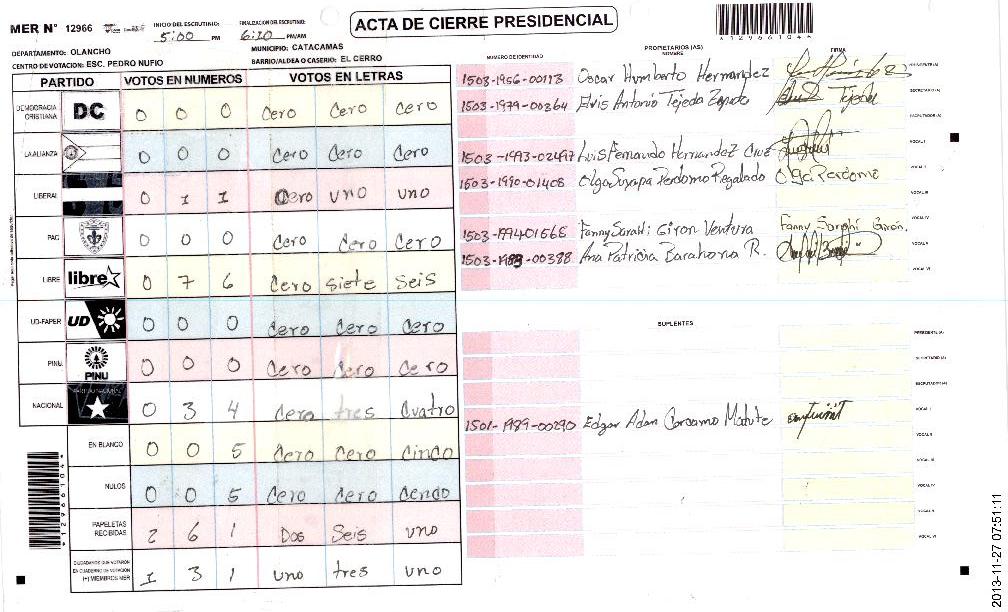 MER N° 12966
INICIO DEL ESCRUTINIO: 5:00 PM
FINALIZACION DEL ESCRUTINIO: 6:20 PM/AM
ACTA DE CIERRE PRESIDENCIAL
*12966104*
DEPARTAMENTO: OLANCHO
MUNICIPIO: CATACAMAS
CENTRO DE VOTACION: ESC. PEDRO NUFIO
BARRIO/ALDEA O CASERIO: EL CERRO
PARTIDO VOTOS EN NUMEROS VOTOS EN LETRAS
DEMOCRACIA CRISTIANA DC 0 0 0 Cero Cero Cero
LA ALIANZA 0 0 0 Cero Cero Cero
LIBERAL 0 1 1 Cero uno uno
PAC 0 0 0 Cero Cero Cero
LIBRE libre 0 7 6 Cero siete seis
UD-FAPER UD 0 0 0 Cero Cero Cero
PINU PINU 0 0 0 Cero Cero Cero
NACIONAL 0 3 4 Cero tres Cuatro
EN BLANCO 0 0 5 Cero Cero Cinco
NULOS 0 0 5 Cero Cero
PAPELETAS RECIBIDAS 2 6 1 Dos Seis uno
CIUDADANOS QUE VOTARON EN CUADERNO DE VOTACION (+) MIEMBROS MER 1 3 1 uno tres uno
*12966104*
PROPIETARIOS (AS)
NUMERO DE IDENTIDAD NOMBRE FIRMA
1503-1956-00113 Oscar Humberto Hernandez PRESIDENTE (A)
1503-1979-00364 Elvis Antonio Tejeda Zapata Tejeda SECRETARIO (A)
ESCRUTADOR (A)
1503-1993-02497 Luis Fernando Hernandez Cruz VOCAL I
1503-1990-01408 Olga Suyapa Perdomo Regalado Olga Perdomo VOCAL II
VOCAL III
1503-199401565 Fanny Sarahi Giron Ventura Fanny Sarahi Giron. VOCAL IV
1503-1983-00388 Ana Patricia Barahona R. VOCAL V
VOCAL VI
SUPLENTES
PRESIDENTE (A)
SECRETARIO (A)
ESCRUTADOR (A)
1501-1989-00290 Edgar Adan Carcamo Matute VOCAL I
VOCAL II
VOCAL III
VOCAL IV
VOCAL V
VOCAL VI
2013-11-27 07:51:11